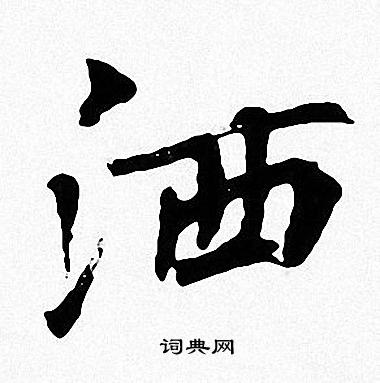 洒
词典网